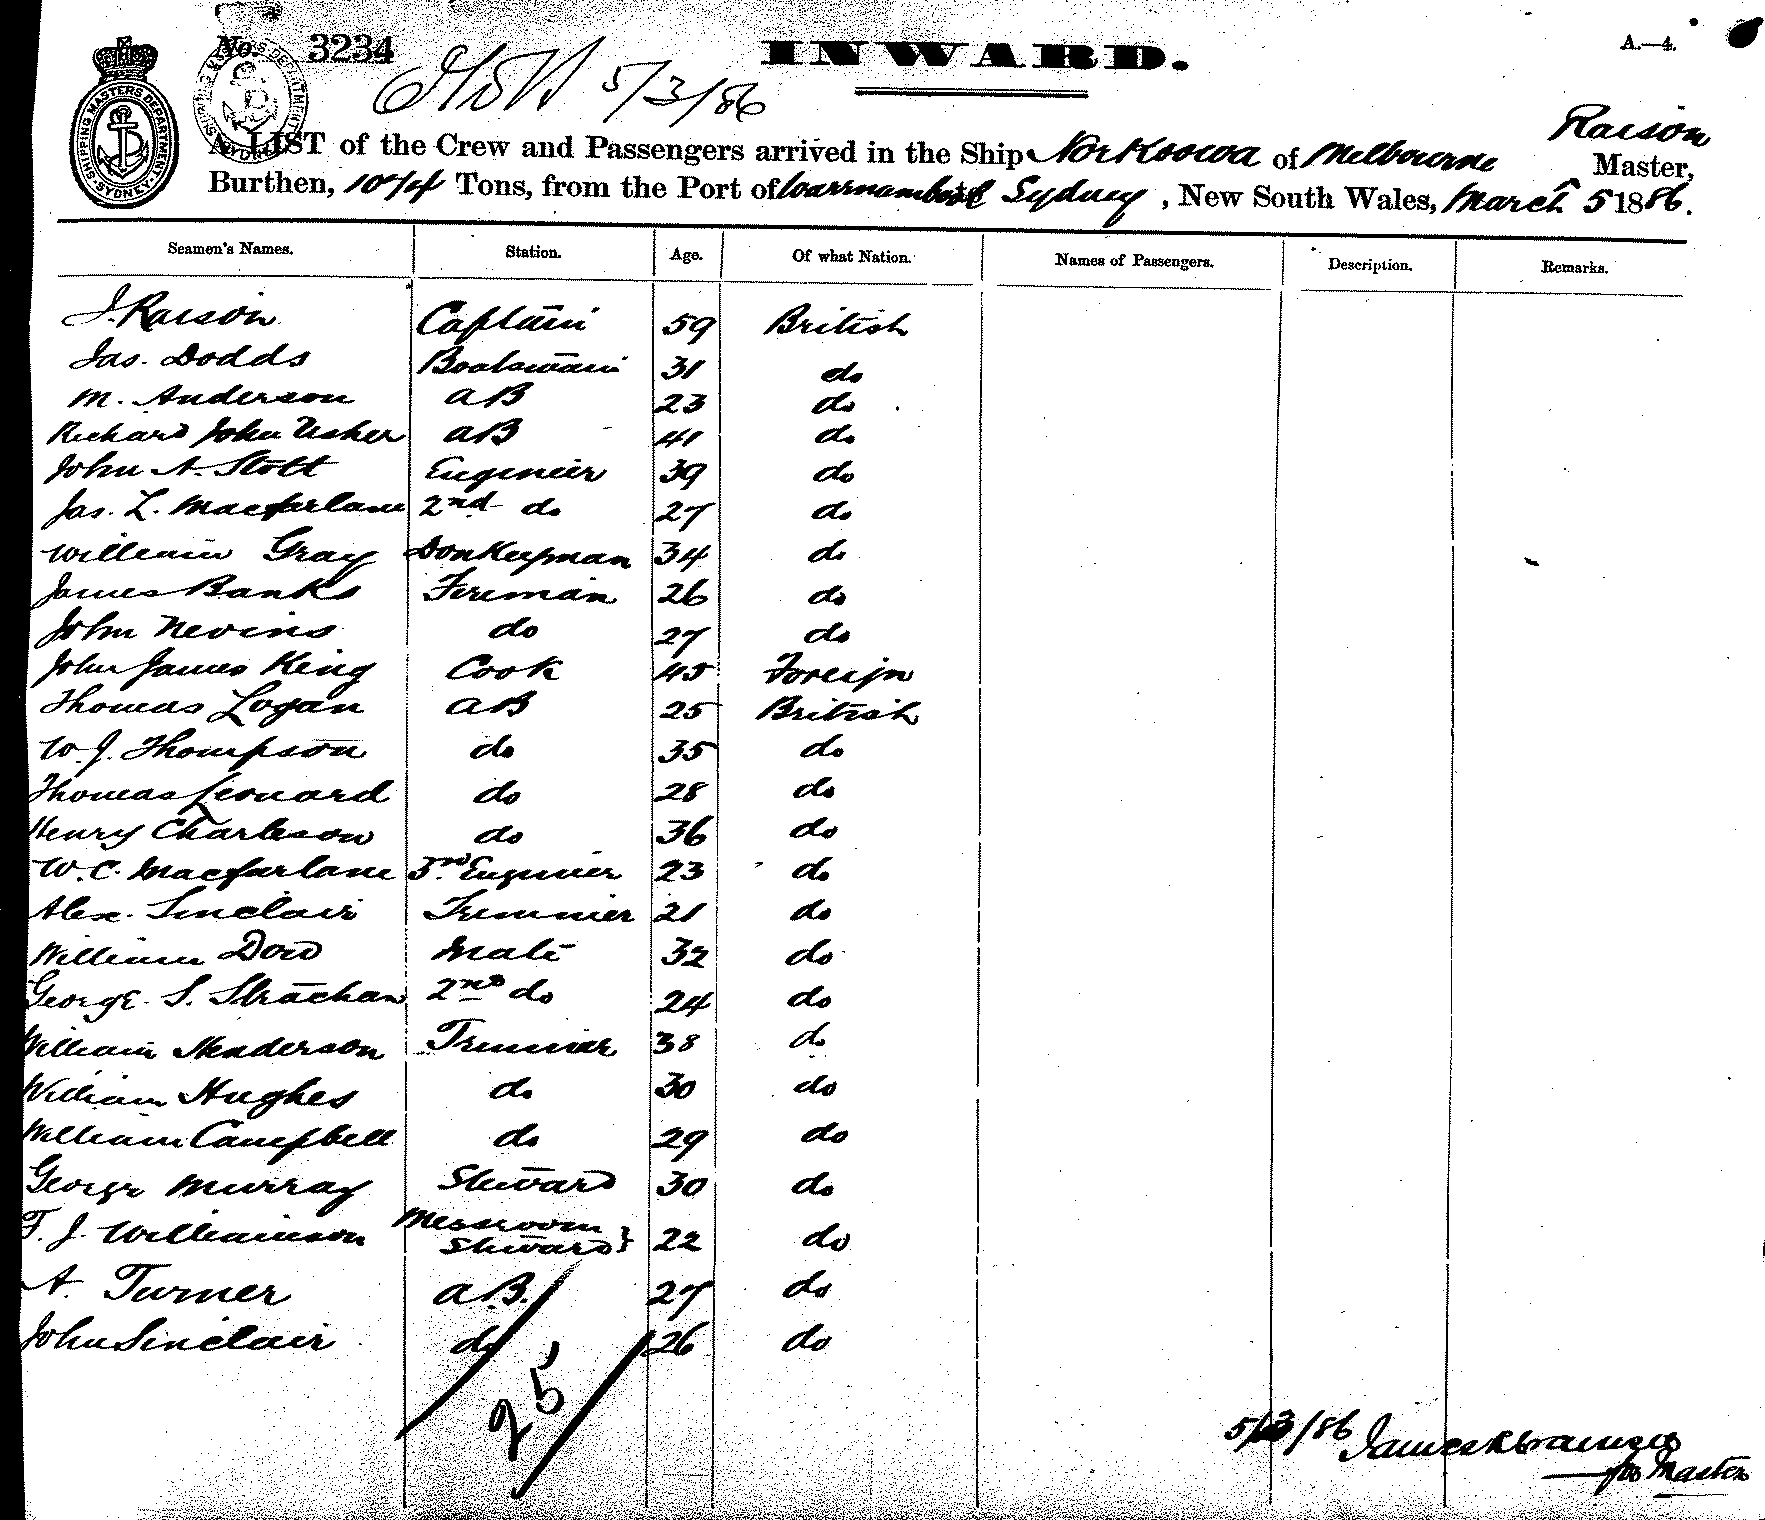 No. 3234
5/3/86
INWARD.
A.—4.
SHIPPING MASTERS DEPARTMENT. SYDNEY.
Raison
A LIST of the Crew and Passengers arrived in the Ship of Melbourne Master,
Burthen, Tons, from the Port of Warrnambool Sydney, New South Wales, March 5 1886.
Seamen's Names. Station. Age. Of what Nation. Names of Passengers. Description. Remarks.
J. Raison Captain 59 British
Jas. Dodds Boatswain 31 do
M. Anderson AB 23 do
Richard John Usher AB 41 do
John A. Stott Engineer 39 do
Jas. L. Macfarlane 2nd do 27 do
William Gray Donkeyman 34 do
James Banks Fireman 26 do
John Nevins do 27 do
John James King Cook 45 Foreign
Thomas Logan AB 25 British
W. J. Thompson do 35 do
Thomas Leonard do 28 do
Henry Charleson do 36 do
W. C. Macfarlane 3rd Engineer 23 do
Alex. Sinclair Trimmer 21 do
William Dow Mate 32 do
George S. Strachan 2nd do 24 do
William Henderson Trimmer 38 do
William Hughes do 30 do
William Campbell do 29 do
George Murray Steward 30 do
F. J. Williamson Messroom Steward} 22 do
A. Turner AB. 27 do
John Sinclair do 26 do
25
5/3/86 James
for Master